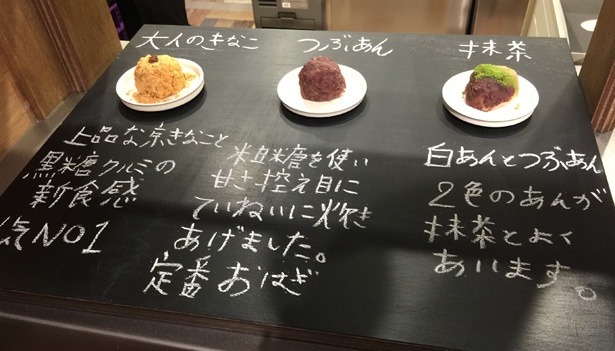 大人のきなこ
上品な京きなこと
黒糖クルミの
新食感
気NO1
つぶあん
粗糖を使い
甘さ控え目に
ていねいに炊き
あげました。
定番おはぎ
抹茶
白あんとつぶあん
2色のあんが
抹茶とよく
あいます。